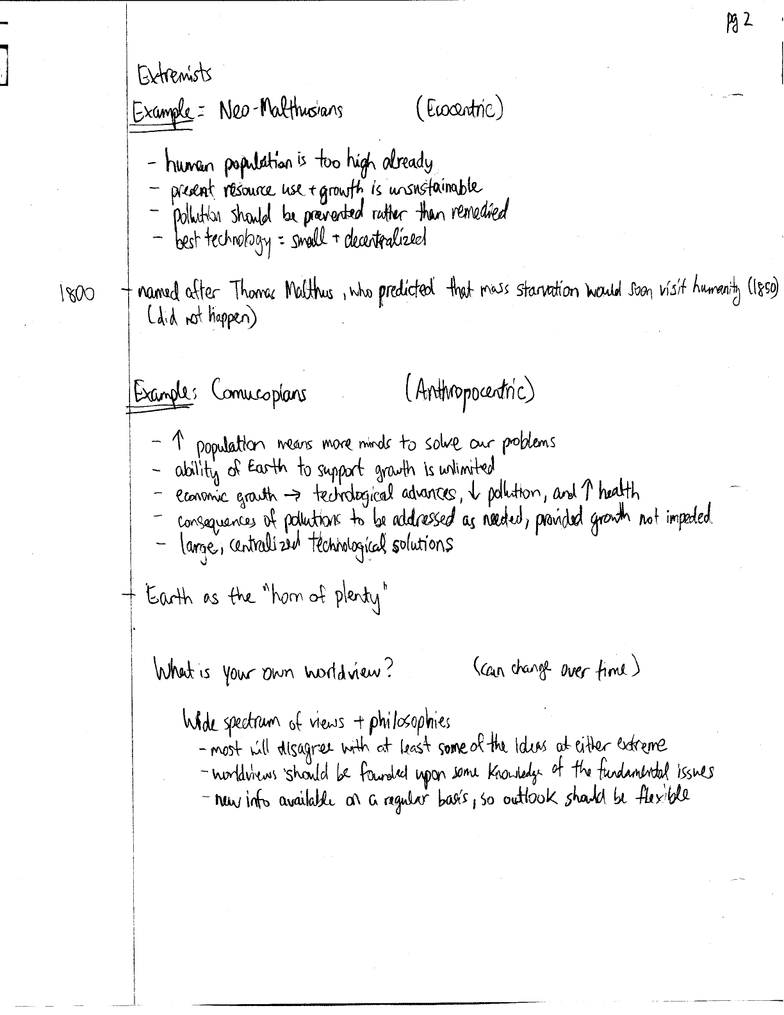 pg 2
Extremists
Example = Neo-Malthusians (Ecocentric)
- human population is too high already
- present resource use + growth is unsustainable
- pollution should be prevented rather than remedied
- best technology = small + decentralized
1800 - named after Thomas Malthus, who predicted that mass starvation would soon visit humanity (1850)
(did not happen)
Example: Cornucopians (Anthropocentric)
- ↑ population means more minds to solve our problems
- ability of Earth to support growth is unlimited
- economic growth → technological advances, ↓ pollution, and ↑ health
- consequences of pollutions to be addressed as needed, provided growth not impeded
- large, centralized technological solutions
- Earth as the "horn of plenty"
What is your own worldview? (can change over time)
Wide spectrum of views + philosophies
- most will disagree with at least some of the ideas at either extreme
- worldviews should be founded upon some knowledge of the fundamental issues
- new info available on a regular basis, so outlook should be flexible